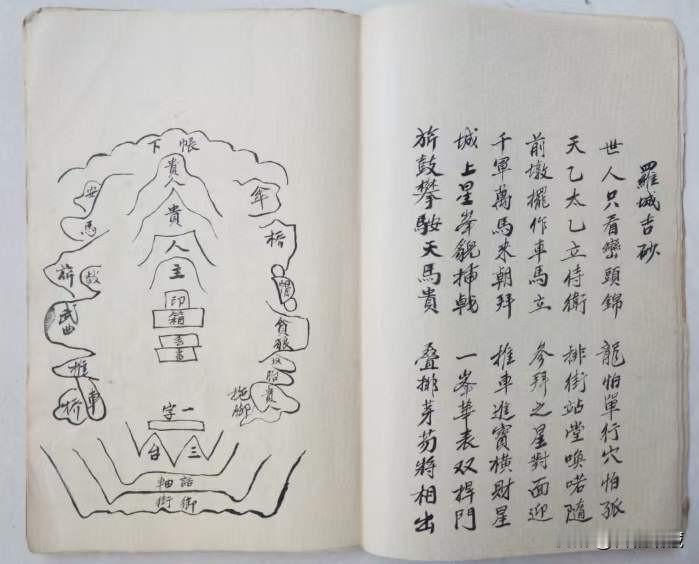 羅城吉砂
世人只看巒頭錦 龍怕單行穴怕孤
天乙太乙立侍衛 排街站堂喚喏隨
前墩擺作車馬立 參拜之星對面迎
千軍萬馬来朝拜 推車進寶橫財星
城上星峯貌插戟 一峯華表双捍門
旂鼓攀鞍天馬貴 叠排芽笏將相出
帳下
貴人
貴
人
主
印
箱
傘
椅
貪狼
貴人
拖腳
安
馬
旂
武曲
推車
桥
一字
三台
誥軸
御街